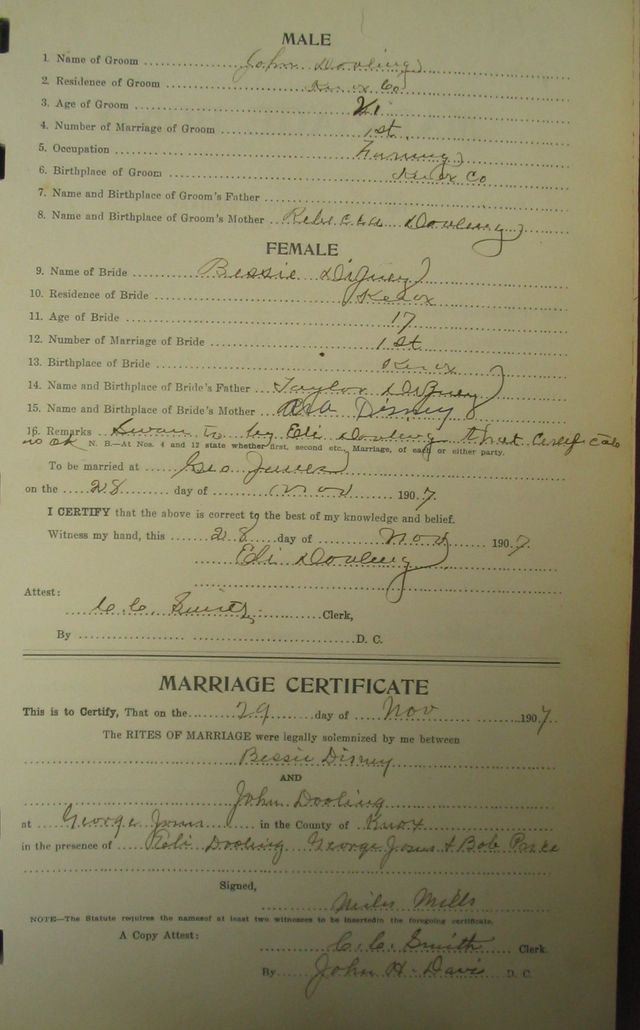 MALE
1. Name of Groom John Dooling
2. Residence of Groom Knox Co
3. Age of Groom 21
4. Number of Marriage of Groom 1st
5. Occupation Farming
6. Birthplace of Groom Knox Co
7. Name and Birthplace of Groom's Father
8. Name and Birthplace of Groom's Mother Rebecca Dooling
FEMALE
9. Name of Bride Bessie Disney
10. Residence of Bride Knox
11. Age of Bride 17
12. Number of Marriage of Bride 1st
13. Birthplace of Bride Knox
14. Name and Birthplace of Bride's Father Taylor Disney
15. Name and Birthplace of Bride's Mother Disney
16. Remarks by Eli Dooling that Certificate
is ok N. B.—At Nos. 4 and 12 state whether first, second etc., Marriage, of each or either party.
To be married at Geo Jones
on the 28 day of Nov 1907.
I CERTIFY that the above is correct to the best of my knowledge and belief.
Witness my hand, this 28 day of Nov 1907
Eli Dooling
Attest:
C. C. Smith Clerk,
By D. C.
MARRIAGE CERTIFICATE
This is to Certify, That on the 29 day of Nov 1907.
The RITES OF MARRIAGE were legally solemnized by me between
Bessie Disney
AND
John Dooling
at George Jones in the County of Knox
in the presence of Eli Dooling George Jones & Bob
Signed,
Miles Mills
NOTE—The Statute requires the namesof at least two witnesses to be insertedin the foregoing certificate.
A Copy Attest:
C. C. Smith Clerk.
By John H. Davis D. C.